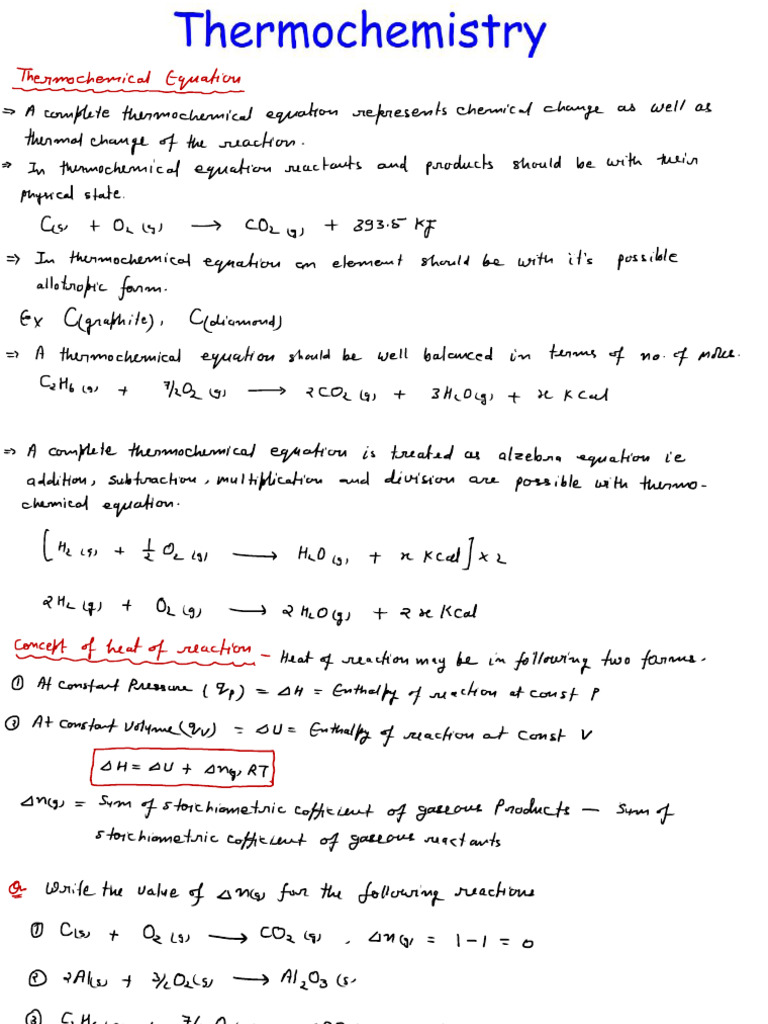 Thermochemistry
Thermochemical Equation
⇒ A complete thermochemical equation represents chemical change as well as
thermal change of the reaction.
⇒ In thermochemical equation reactants and products should be with their
physical state.
C(s) + O2 (g) ⟶ CO2 (g) + 393.5 KJ
⇒ In thermochemical equation an element should be with it's possible
allotropic form.
Ex C(graphite), C(diamond)
⇒ A thermochemical equation should be well balanced in terms of no. of moles.
C2H6 (g) + 7/2O2 (g) ⟶ 2CO2 (g) + 3H2O(g) + x KCal
⇒ A complete thermochemical equation is treated as alzebra equation ie
addition, subtraction, multiplication and division are possible with thermo-
chemical equation.
[H2 (g) + 1/2 O2 (g) ⟶ H2O (g) + x KCal] × 2
2H2 (g) + O2 (g) ⟶ 2H2O(g) + 2x KCal
Concept of heat of reaction – Heat of reaction may be in following two forms.
① At constant Pressure (qp) = ΔH = Enthalpy of reaction at const P
② At constant volume (qv) = ΔU = Enthalpy of reaction at const V
ΔH = ΔU + Δn(g) RT
Δn(g) = Sum of stoichiometric cofficient of gaseous Products – Sum of
stoichiometric cofficient of gaseous reactants
Q Write the value of Δn(g) for the following reactions
① C(s) + O2 (g) ⟶ CO2 (g) , Δn(g) = 1-1 = 0
② 2Al(s) + 3/2O2(g) ⟶ Al2O3 (s)
③ C2H6 7/2 O2